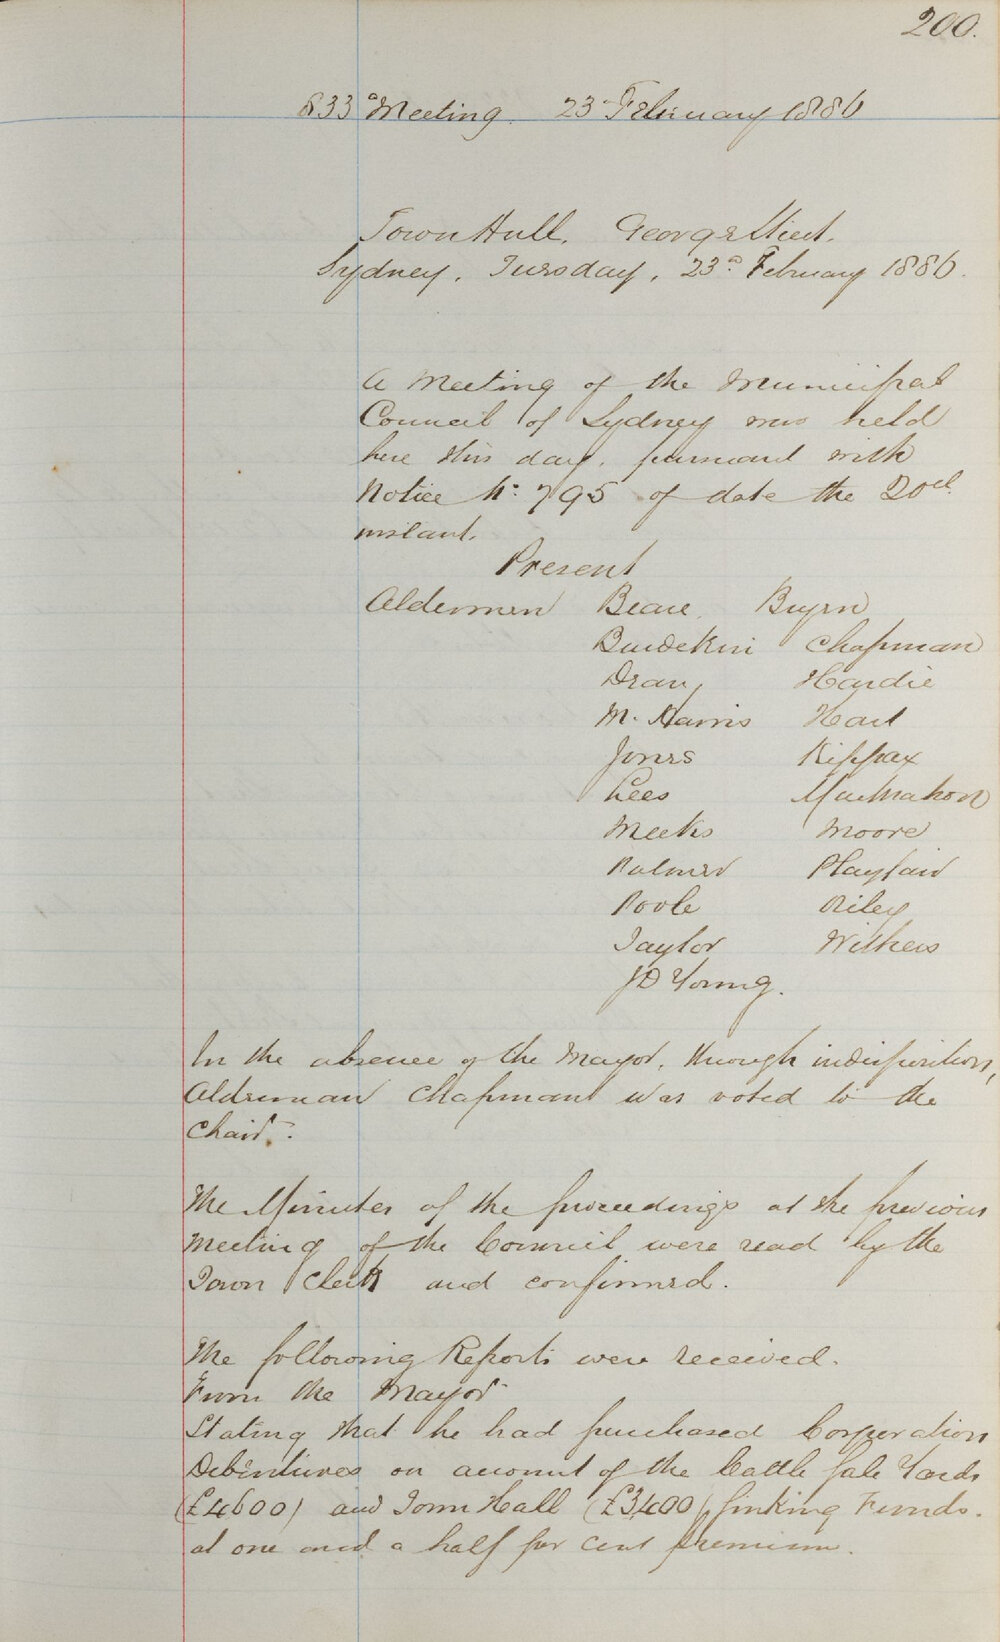 200.
833d Meeting. 23d February 1886
Town Hall, George Street,
Sydney, Tuesday, 23d February 1886.
A Meeting of the Municipal
Council of Sydney was held
here this day, pursuant with
Notice No. 795 of date the 20th
instant.
Present
Aldermen Beare, Buyrn
Burdekin Chapman
Dean, Hardie
M. Harris Hart
Jones Kippax
Lees MacMahon
Meeks Moore
Palmer Playfair
Poole Riley
Taylor Withers
JD Young.
In the absence of the Mayor, through indisposition,
Alderman Chapman was voted to the
Chair.
The Minutes of the proceedings at the previous
Meeting of the Council were read by the
Town Clerk and confirmed.
The following Reports were received.
From the Mayor
Stating that he had purchased Corporation
Debentures on account of the Cattle Sale Yards
(£4600) and Town Hall (£3,400) Sinking Funds.
at one and a half per cent premium.